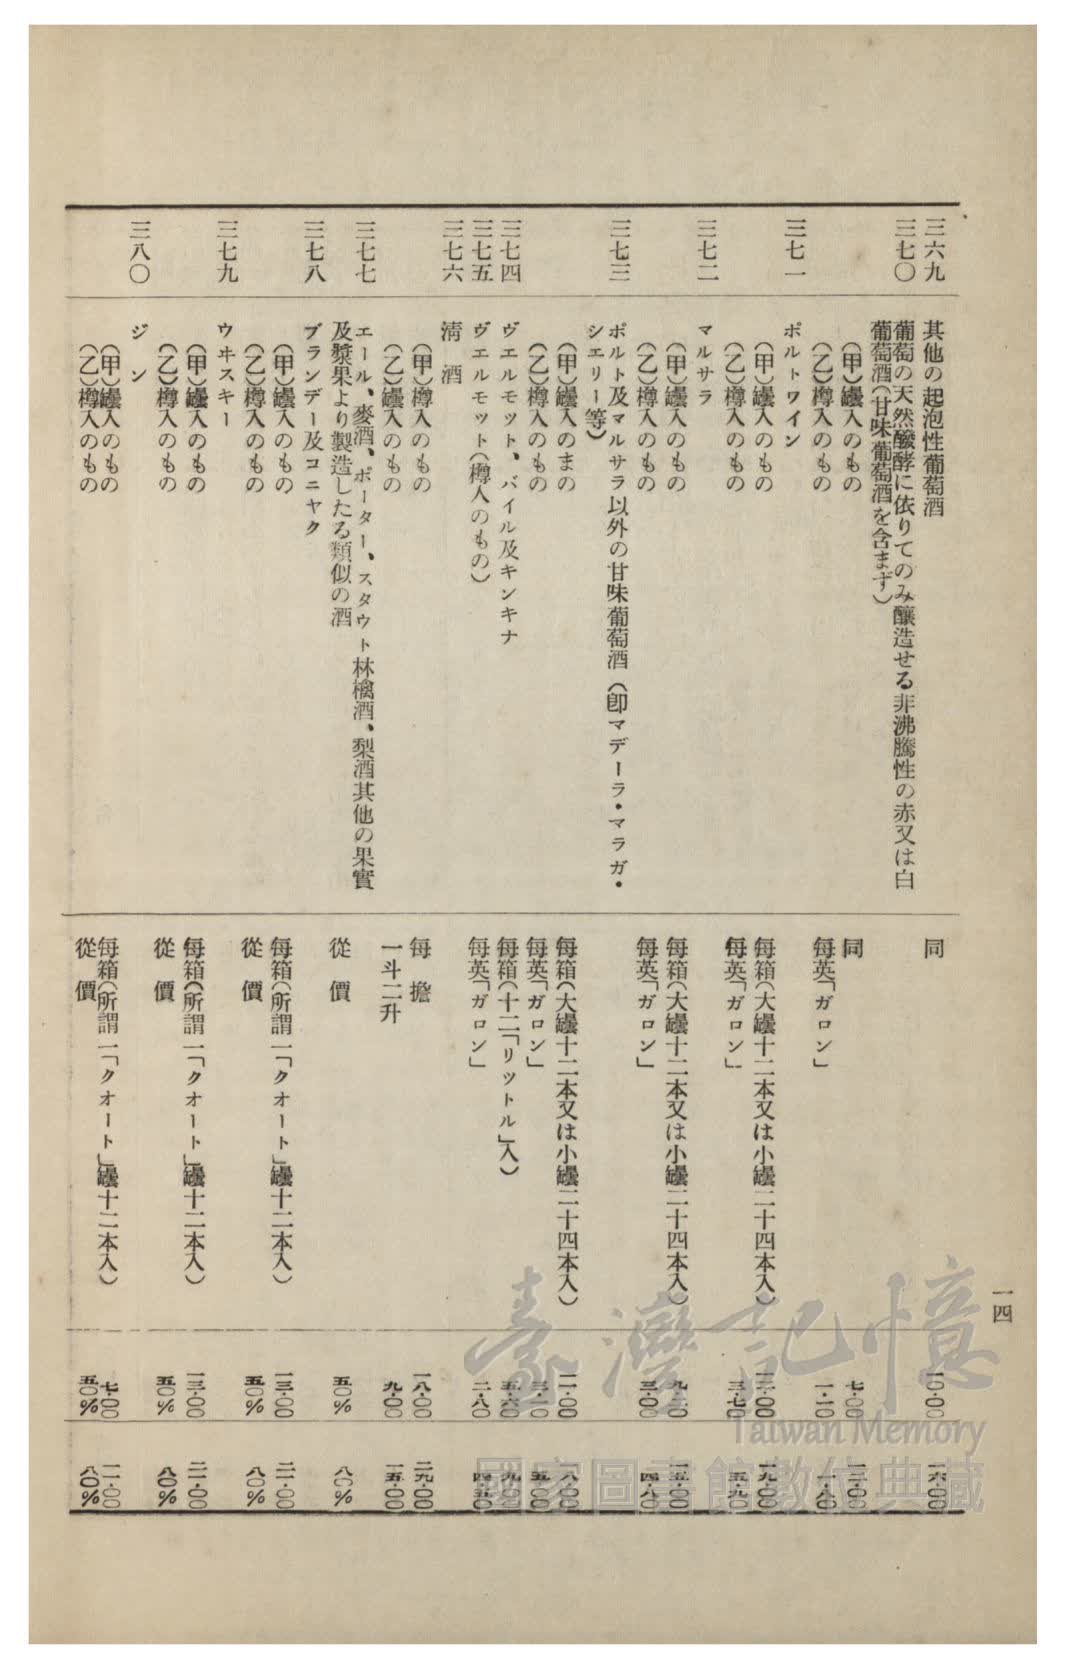 一四
三六九 其他の起泡性葡萄酒 同 一〇・〇〇 一六・〇〇
三七〇 葡萄の天然醱酵に依りてのみ釀造せる非沸騰性の赤又は白
葡萄酒(甘味葡萄酒を含まず)
(甲)罎入のもの 同 七・〇〇 一二・〇〇
(乙)樽入のもの 每英「ガロン」 一・一〇 一・八〇
三七一 ポルトワイン
(甲)罎入のもの 每箱(大罎十二本又は小罎二十四本入) 一二・〇〇 一九・〇〇
(乙)樽入のもの 每英「ガロン」 三・七〇 五・九〇
三七二 マルサラ
(甲)罎入のもの 每箱(大罎十二本又は小罎二十四本入) 一五・〇〇
(乙)樽入のもの 每英「ガロン」 三・〇〇 四・八〇
三七三 ポルト及マルサラ以外の甘味葡萄酒(卽マデーラ・マラガ・
シエリー等)
(甲)罎入のまの 每箱(大罎十二本又は小罎二十四本入) 一一・〇〇 一八・〇〇
(乙)樽入のもの 每英「ガロン」 三・一〇 五・〇〇
三七四 ヴエルモツト、バイル及キンキナ 每箱(十二「リツトル」入) 五・六〇 九・〇〇
三七五 ヴエルモツト(樽入のもの) 每英「ガロン」 二・八〇 四・五〇
三七六 淸酒
(甲)樽入のもの 每擔 一八・〇〇 二九・〇〇
(乙)罎入のもの 一斗二升 九・〇〇 一五・〇〇
三七七 エール、麥酒、ポーター、スタウト林檎酒、梨酒其他の果實
及漿果より製造したる類似の酒 從價 五〇% 八〇%
三七八 ブランデー及コニヤク
(甲)罎入のもの 每箱(所謂一「クオート」罎十二本入) 一三・〇〇 二一・〇〇
(乙)樽入のもの 從價 五〇% 八〇%
三七九 ウヰスキー
(甲)罎入のもの 每箱(所謂一「クオート」罎十二本入) 一三・〇〇 二一・〇〇
(乙)樽入のもの 從價 五〇% 八〇%
三八〇 ジン
(甲)罎入のもの 每箱(所謂一「クオート」罎十二本入) 七・〇〇 一一・〇〇
(乙)樽入のもの 從價 五〇% 八〇%
臺灣記憶
Taiwan Memory
國家圖書館數位典藏